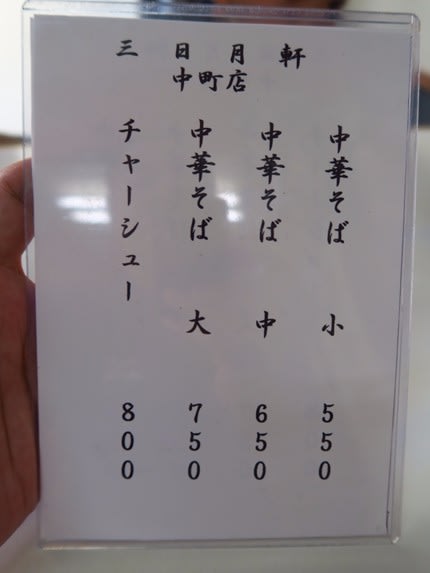 三日月軒
中町店
中華そば 小 550
中華そば 中 650
中華そば 大 750
チャーシュー 800